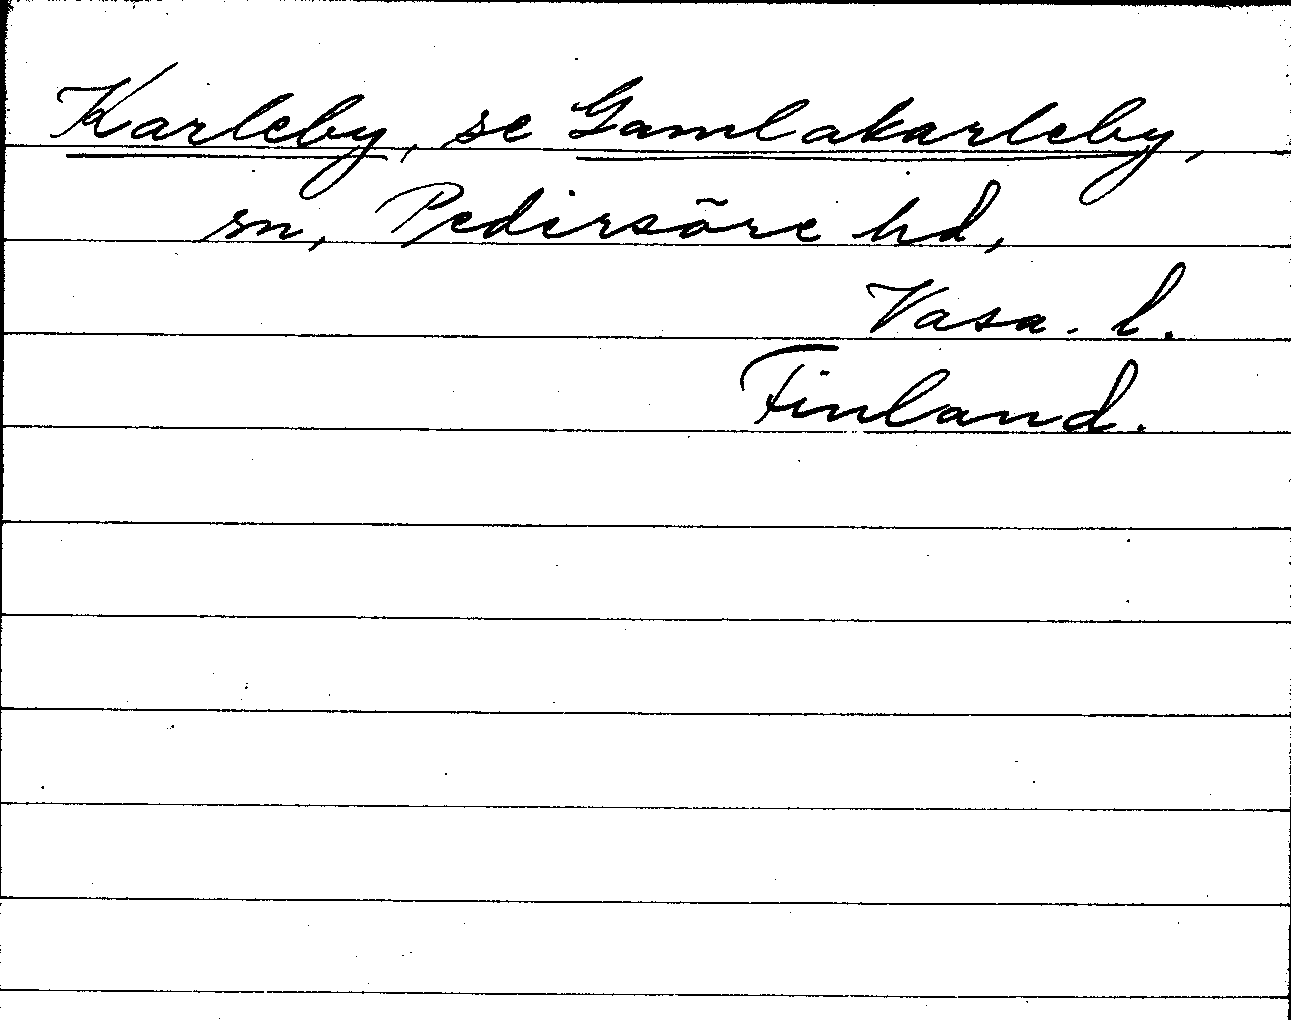 Karleby, se Gamlakarleby,
sn, Pedirsöre hd,
Vasa. l.
Finland.